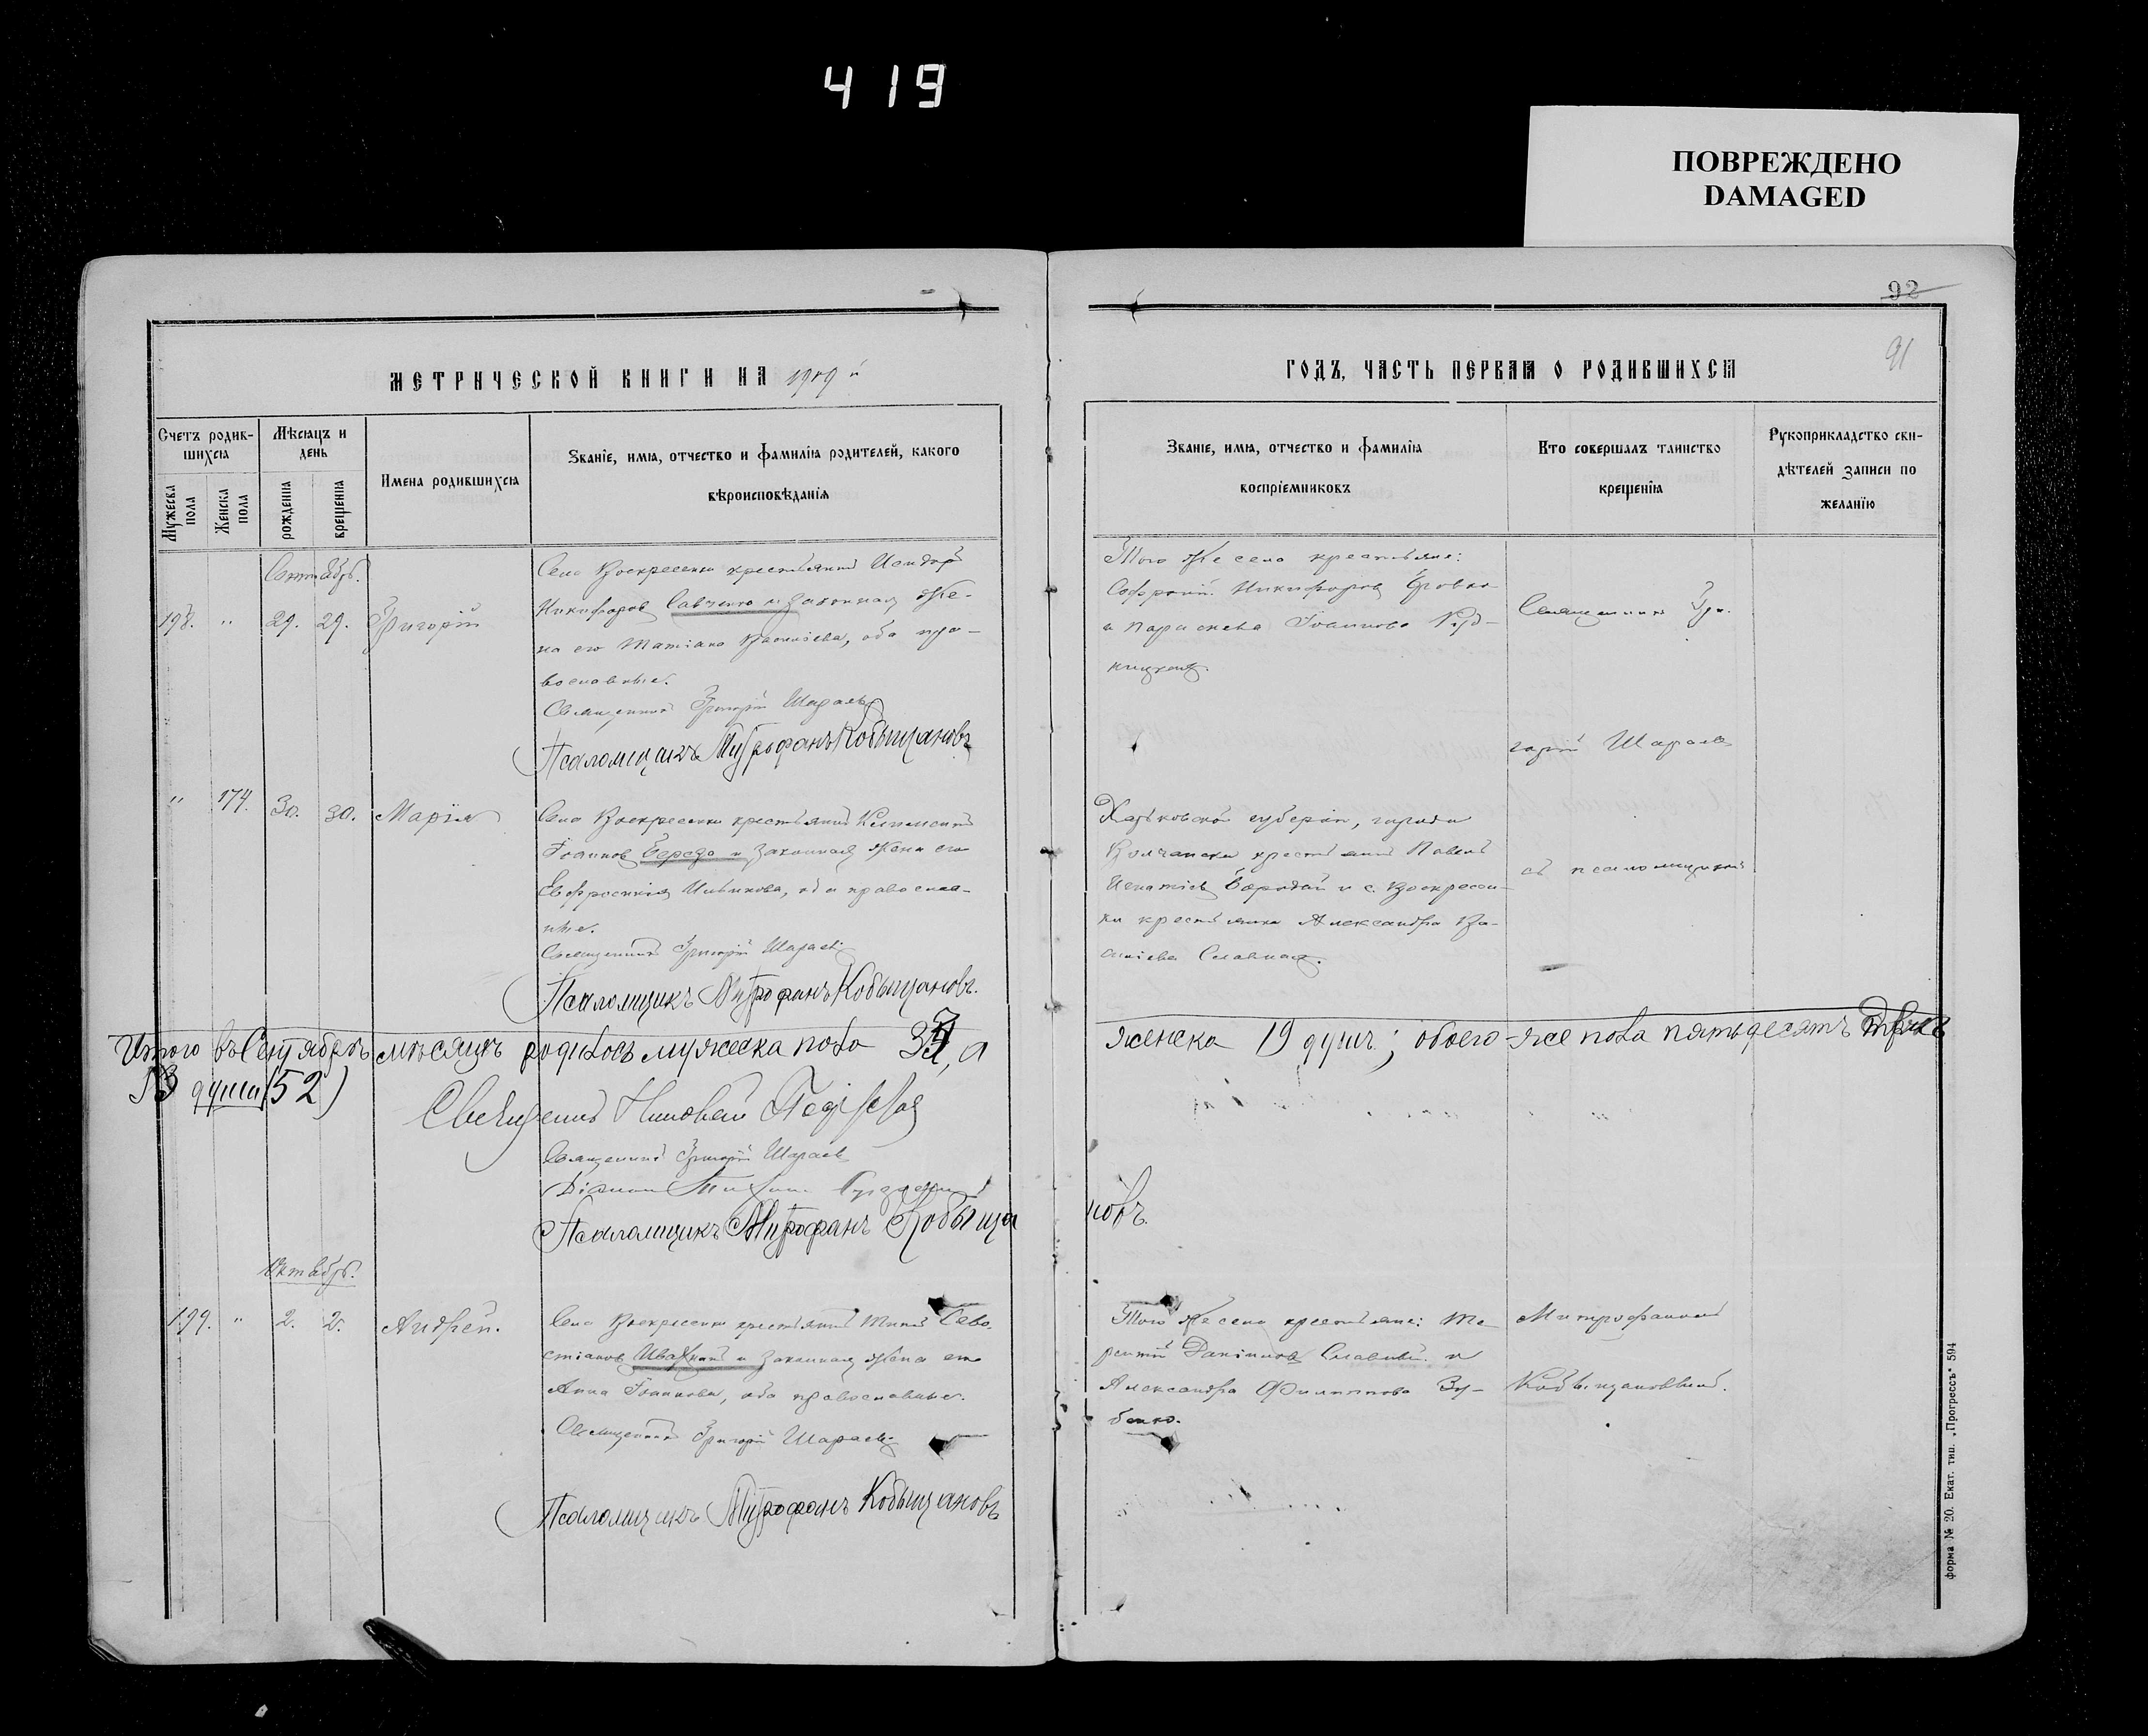 419
ПОВРЕЖДЕНО
DAMAGED
92
91
МЕТРИЧЕСКОЙ КНИГИ НА 1909 й
ГОДЪ, ЧАСТЬ ПЕРВАЯ О РОДИВШИХСЯ
Счетъ родив-
шихся
Мужеска пола
Женска пола
Мѣсяцъ и
день
рожденія
крещенія
Имена родившихся
Званіе, имя, отчество и фамилія родителей, какого
вѣроисповѣданія
Званіе, имя, отчество и фамилія
воспріемниковъ
Кто совершалъ таинство
крещенія
Рукоприкладство сви-
дѣтелей записи по
желанію
Сентябрь.
198. " 29. 29. Григорій
Села Воскресенки крестьянинъ Исидоръ
Никифоровъ Савченко и законная же-
на его Татіана Василіева, оба пра-
вославные.
Священникъ Григорій Шараевъ
Псаломщикъ Митрофанъ Кобыщановъ
Того же села крестьяне:
Софроній Никифоровъ Бровко
и Параскева Іоаннова
Священникъ Гри-
горій Шараевъ
" 174. 30. 30. Марія
Села Воскресенки крестьянинъ Климентъ
Іоанновъ Береза и законная жена его
Евфросинія, оба православ-
ные.
Священникъ Григорій Шараевъ
Псаломщикъ Митрофанъ Кобыщановъ.
Харьковской губерніи, города
Волчанска крестьянинъ Павелъ
Игнатіевъ Бородай и с. Воскресен-
ки крестьянка Александра Ва-
силіева Славная.
съ псаломщикомъ
Итого въ Сентябрѣ мѣсяцѣ родилось мужеска пола 33, а
женска 19 душъ; обоего-же пола пятьдесятъ
душъ (52)
Священникъ
Священникъ Григорій Шараевъ
Діаконъ
Псаломщикъ Митрофанъ Кобыща
новъ.
Октябрь.
199. " 2. 2. Андрей.
Села Воскресенки крестьянинъ Титъ Сева-
стіановъ и законная жена его
Анна Іоаннова, оба православные.
Священникъ Григорій Шараевъ
Псаломщикъ Митрофанъ Кобыщановъ
Того же села крестьяне: Те-
рентій Даніиловъ Славный и
Александра Филиппова Зу-
бенко.
Митрофаномъ
Кобыщановымъ.
форма № 20. Екат. тип. „Прогрессъ" 594